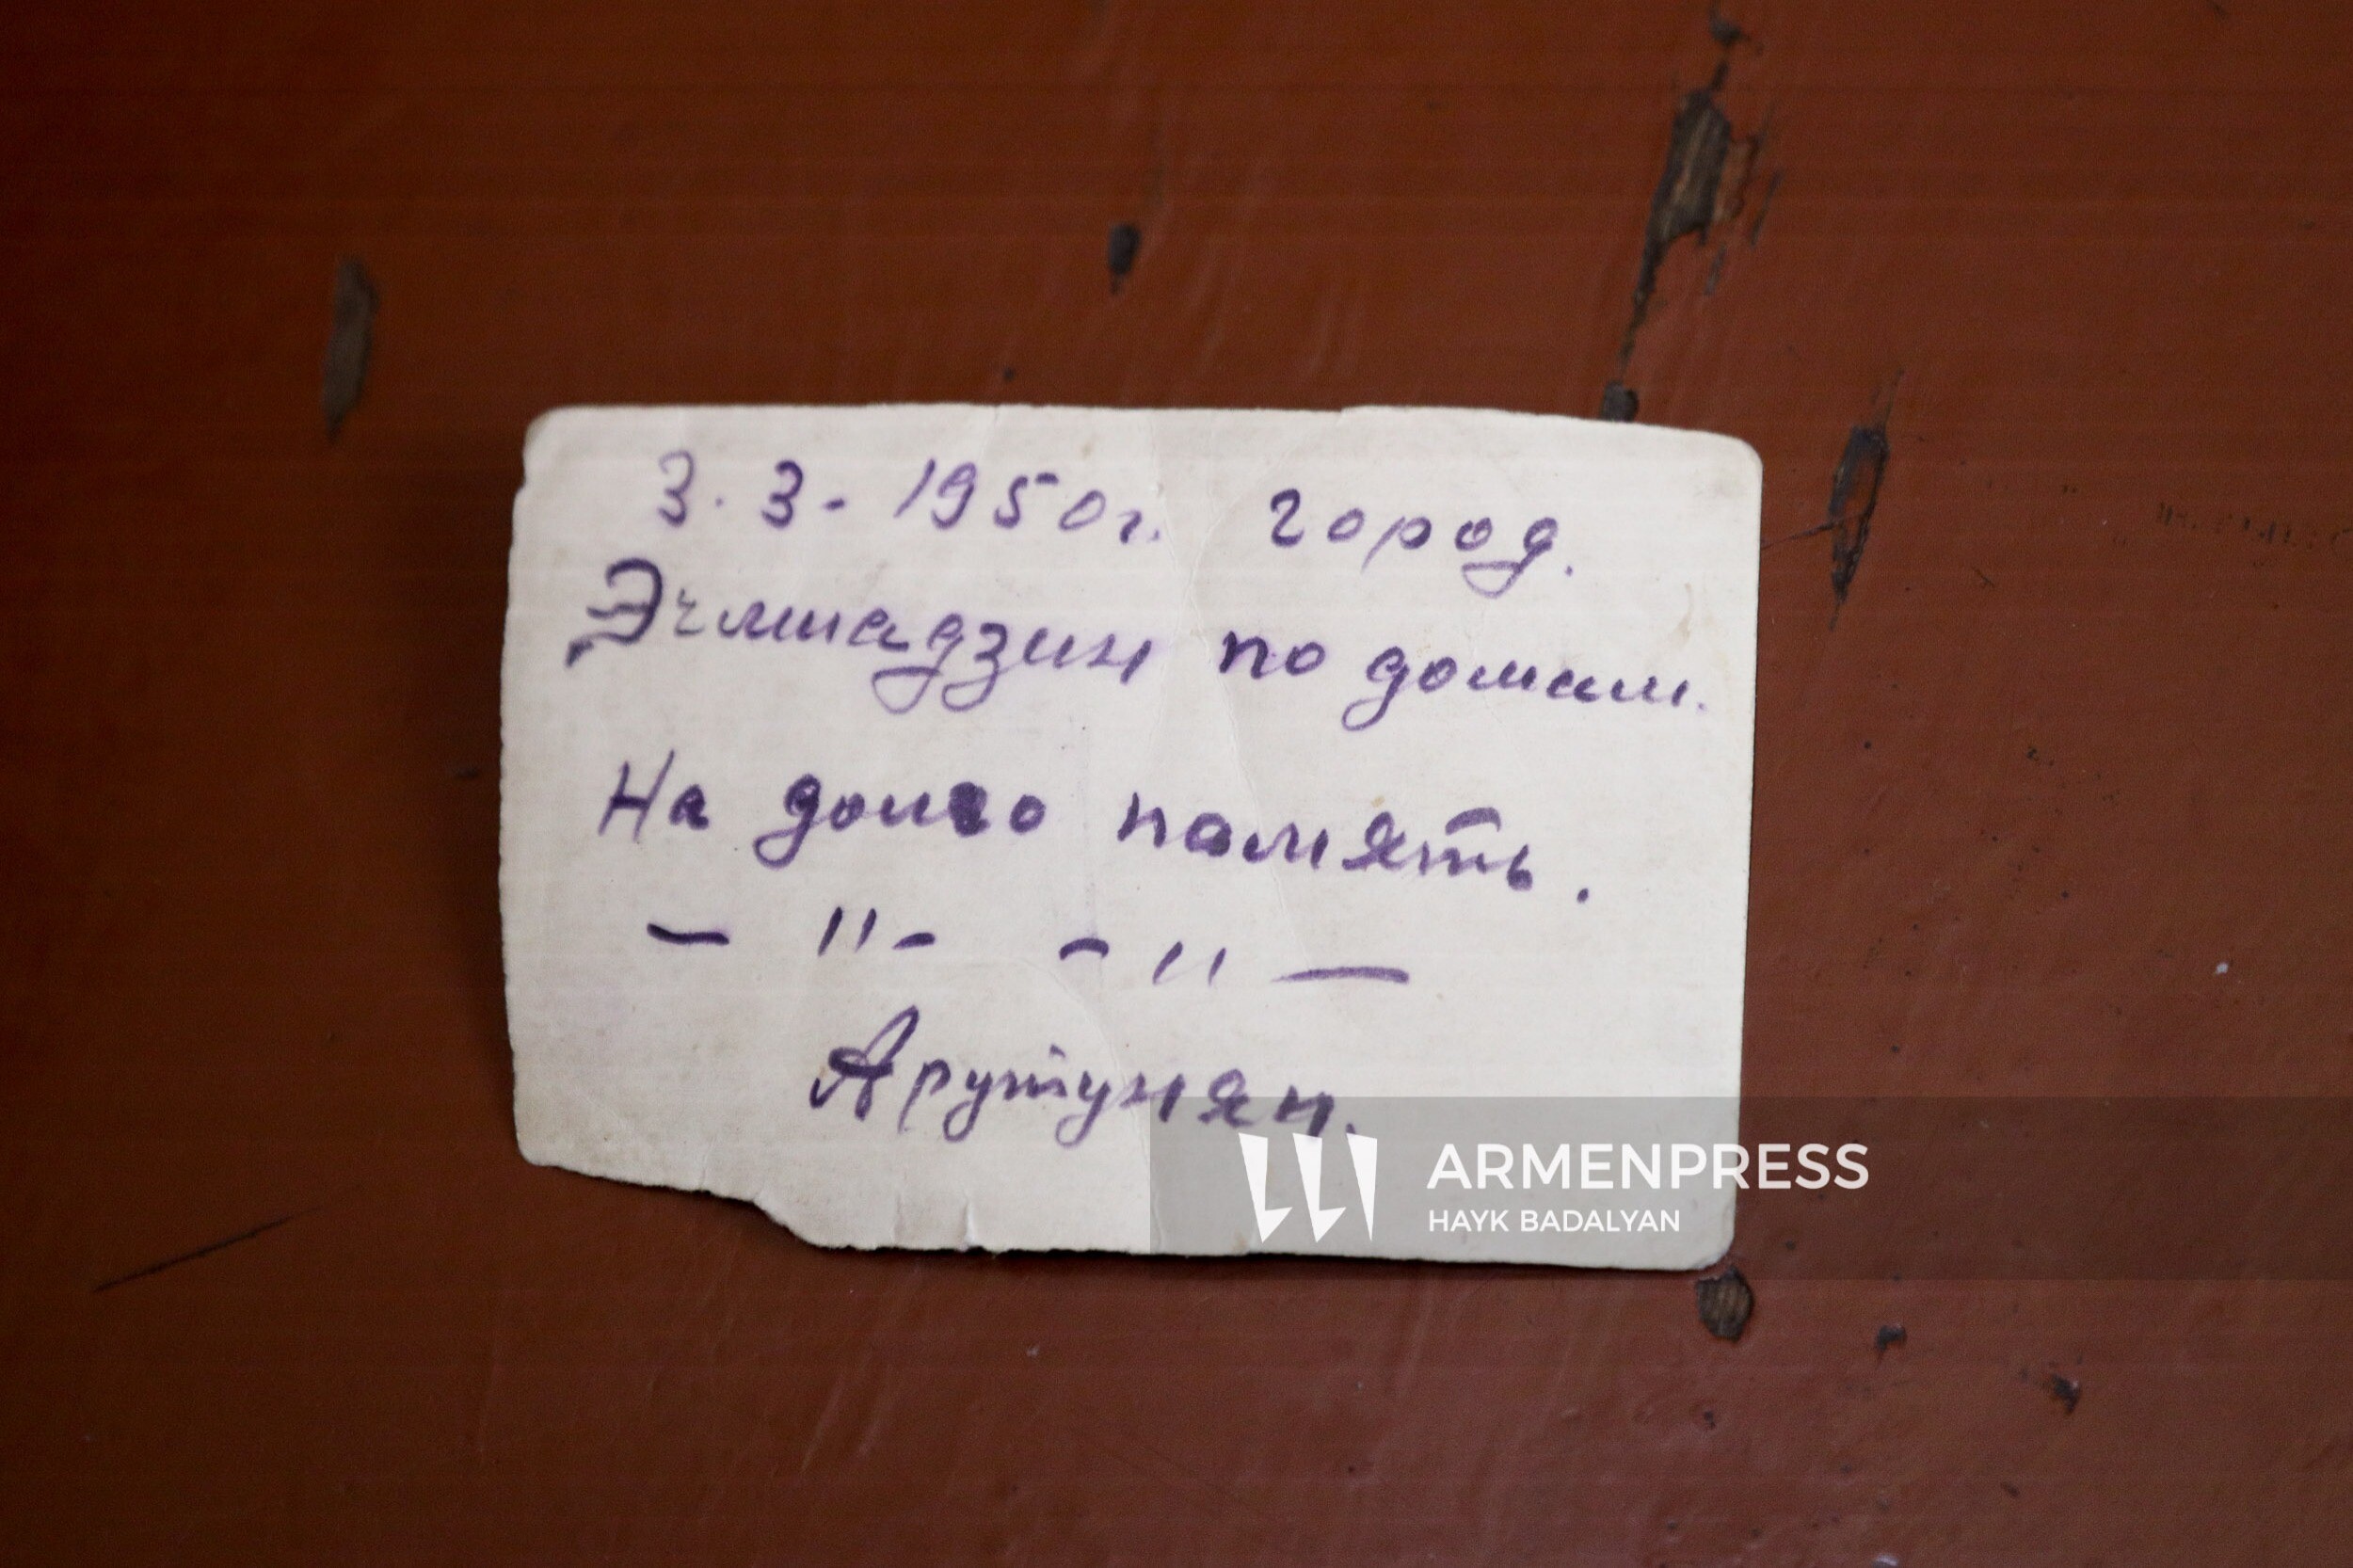 3.3-1950г. город.
Эчмиадзин по домам.
На долго память.
— "- -" —
Арутунян.
ARMENPRESS
HAYK BADALYAN